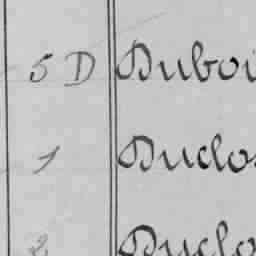 5 D Duboi
1 Duclo
2 Duclo